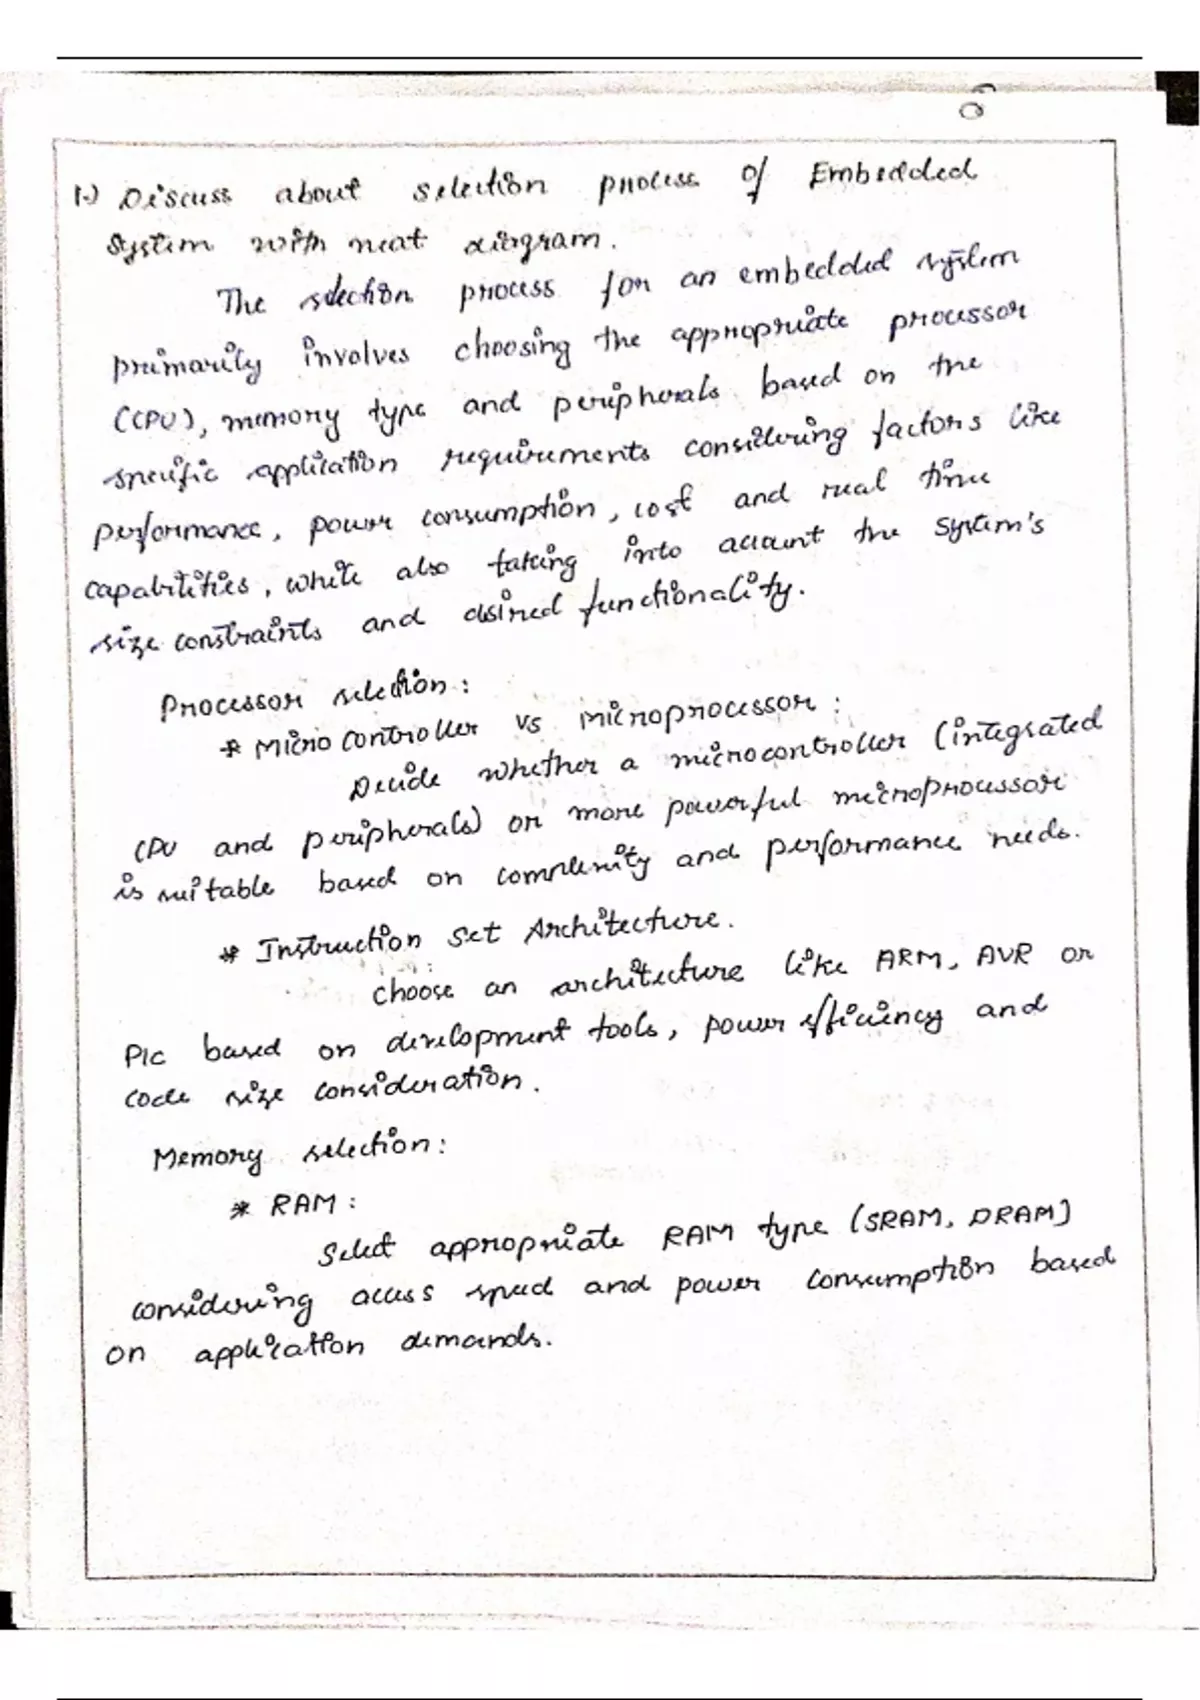 1.) Discuss about selection process of Embedded
System with neat diagram.
The selection process for an embedded system
primarily involves choosing the appropriate processor
(CPU), memory type and peripherals based on the
specific application requirements considering factors like
performance, power consumption, cost and real time
capabilities, while also taking into account the system's
size constraints and desired functionality.
Processor selection:
* Micro controller vs microprocessor:
Decide whether a microcontroller (integrated
CPU and peripherals) or more powerful microprocessor
is suitable based on complexity and performance needs.
* Instruction Set Architecture.
choose an architecture like ARM, AVR or
PIC based on development tools, power efficiency and
code size consideration.
Memory selection:
* RAM:
Select appropriate RAM type (SRAM, DRAM)
considering access speed and power consumption based
on application demands.